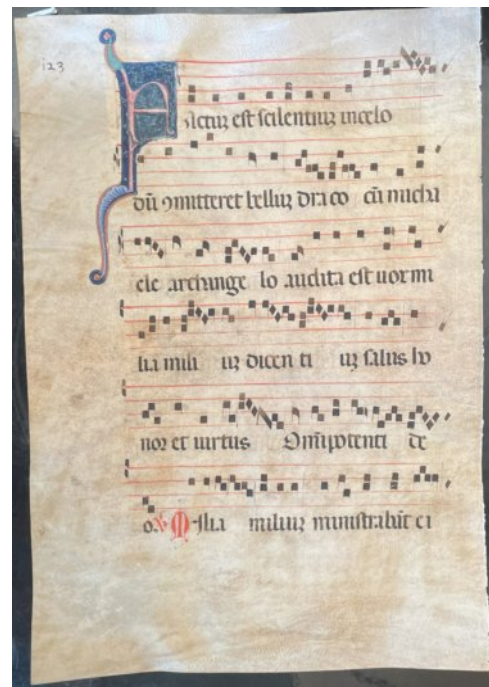 123
Factuʒ est scilentiuʒ incelo
dū ꝯmitteret belluʒ draco cū micha
ele archange lo audita est uox mi
lia mili uʒ dicen ti uʒ salus ho
nor et uirtus Omīpotenti de
o. V Milia miliuʒ ministrabūt ei